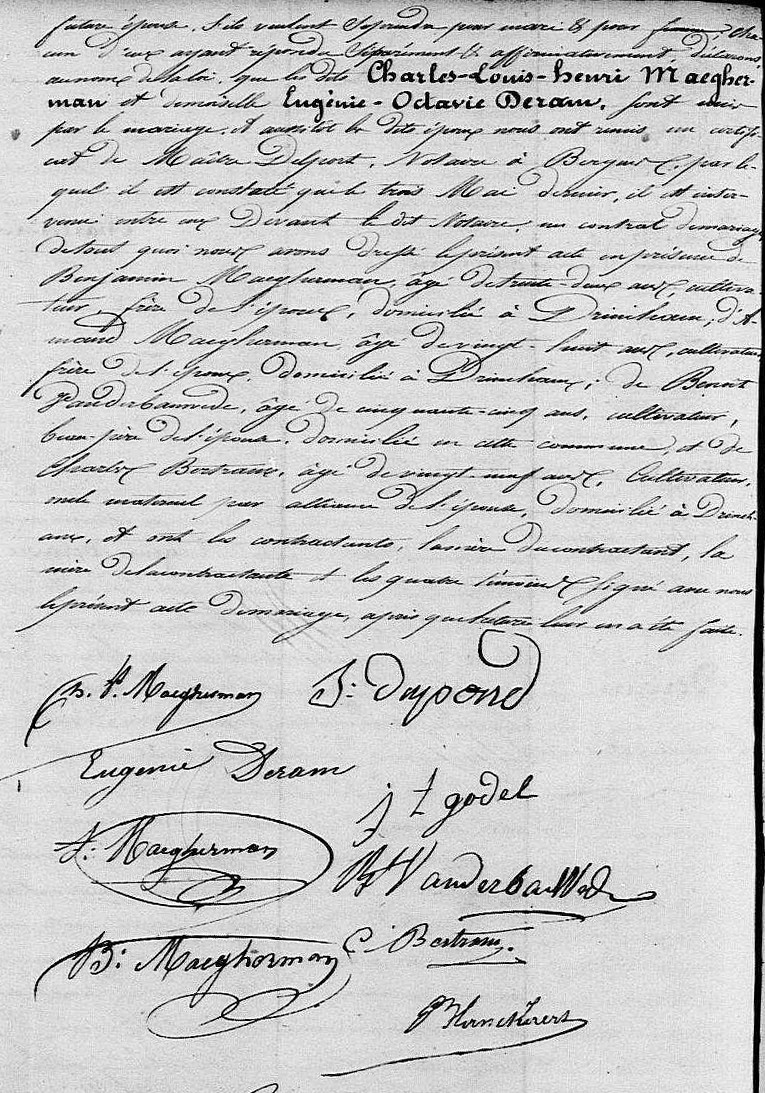 future épouse, s'ils veulent se prendre pour mari & pour femme, cha-
cun d'eux ayant répondu séparément & affirmativement, déclarons,
au nom de la loi, que les dits Charles-Louis-henri Maegher-
man et demoiselle Eugénie-Octavie Deram, sont unis
par le mariage, et aussitôt les dits époux nous ont remis un certifi-
cat de Maître Delport, Notaire à Bergues, par le-
quel il est constaté que le trois Mai dernier, il est inter-
venu entre eux Devant le dit Notaire, un contrat de mariage,
de tout quoi nous avons dressé le présent acte en présence de
Benjamin Maegherman, âgé de trente-deux ans, cultiva-
teur, frère de l'époux, domicilié à Drincham; d'A-
mand Maegherman âgé de vingt-huit ans, cultivateur,
frère de l'époux, domicilié à Drincham; de Benoit
Vanderbauwede, âgé de cinquante-cinq ans, cultivateur,
beau-père de l'épouse, domicilié en cette commune, et de
Charles Bertram, âgé de vingt-neuf ans, Cultivateur,
oncle maternel par alliance de l'épouse, domicilié à Drinch-
am, et ont les contractants, la mère du contractant, la
mère de la contractante et les quatre témoins signé avec nous
le présent acte de mariage, après que lecture leur en a été faite.
h. Maegherman J: dupond
Eugénie Deram
j t godel
A: Maegherman
B Vanderbauwede
B: Maegherman C: Bertram.